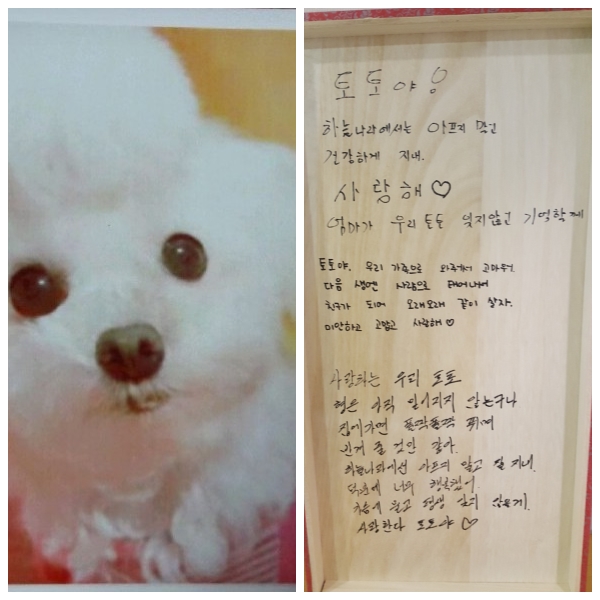 토토야!
하늘나라에서는 아프지 말고
건강하게 지내.
사랑해♡
엄마가 우리 토토 잊지않고 기억할께
토토야. 우리 가족으로 와줘서 고마워.
다음 생엔 사람으로 태어나서
친구가 되어 오래오래 같이 살자.
미안하고 고맙고 사랑해♡
사랑하는 우리 토토
형은 아직 믿어지지 않는구나
집에가면 폴짝폴짝 뛰며
반겨 줄 것만 같아.
하늘나라에선 아프지 말고 잘 지내.
덕분에 너무 행복했어.
가슴에 묻고 평생 잊지 않을게.
사랑한다 토토야♡